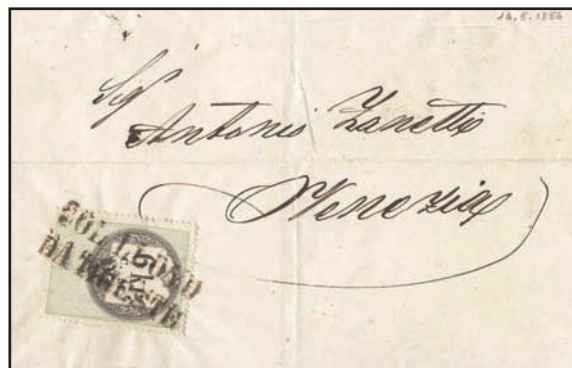 Sigr
Antonio Zanetti
Venezia
COL LLOYD
DA TRIESTE